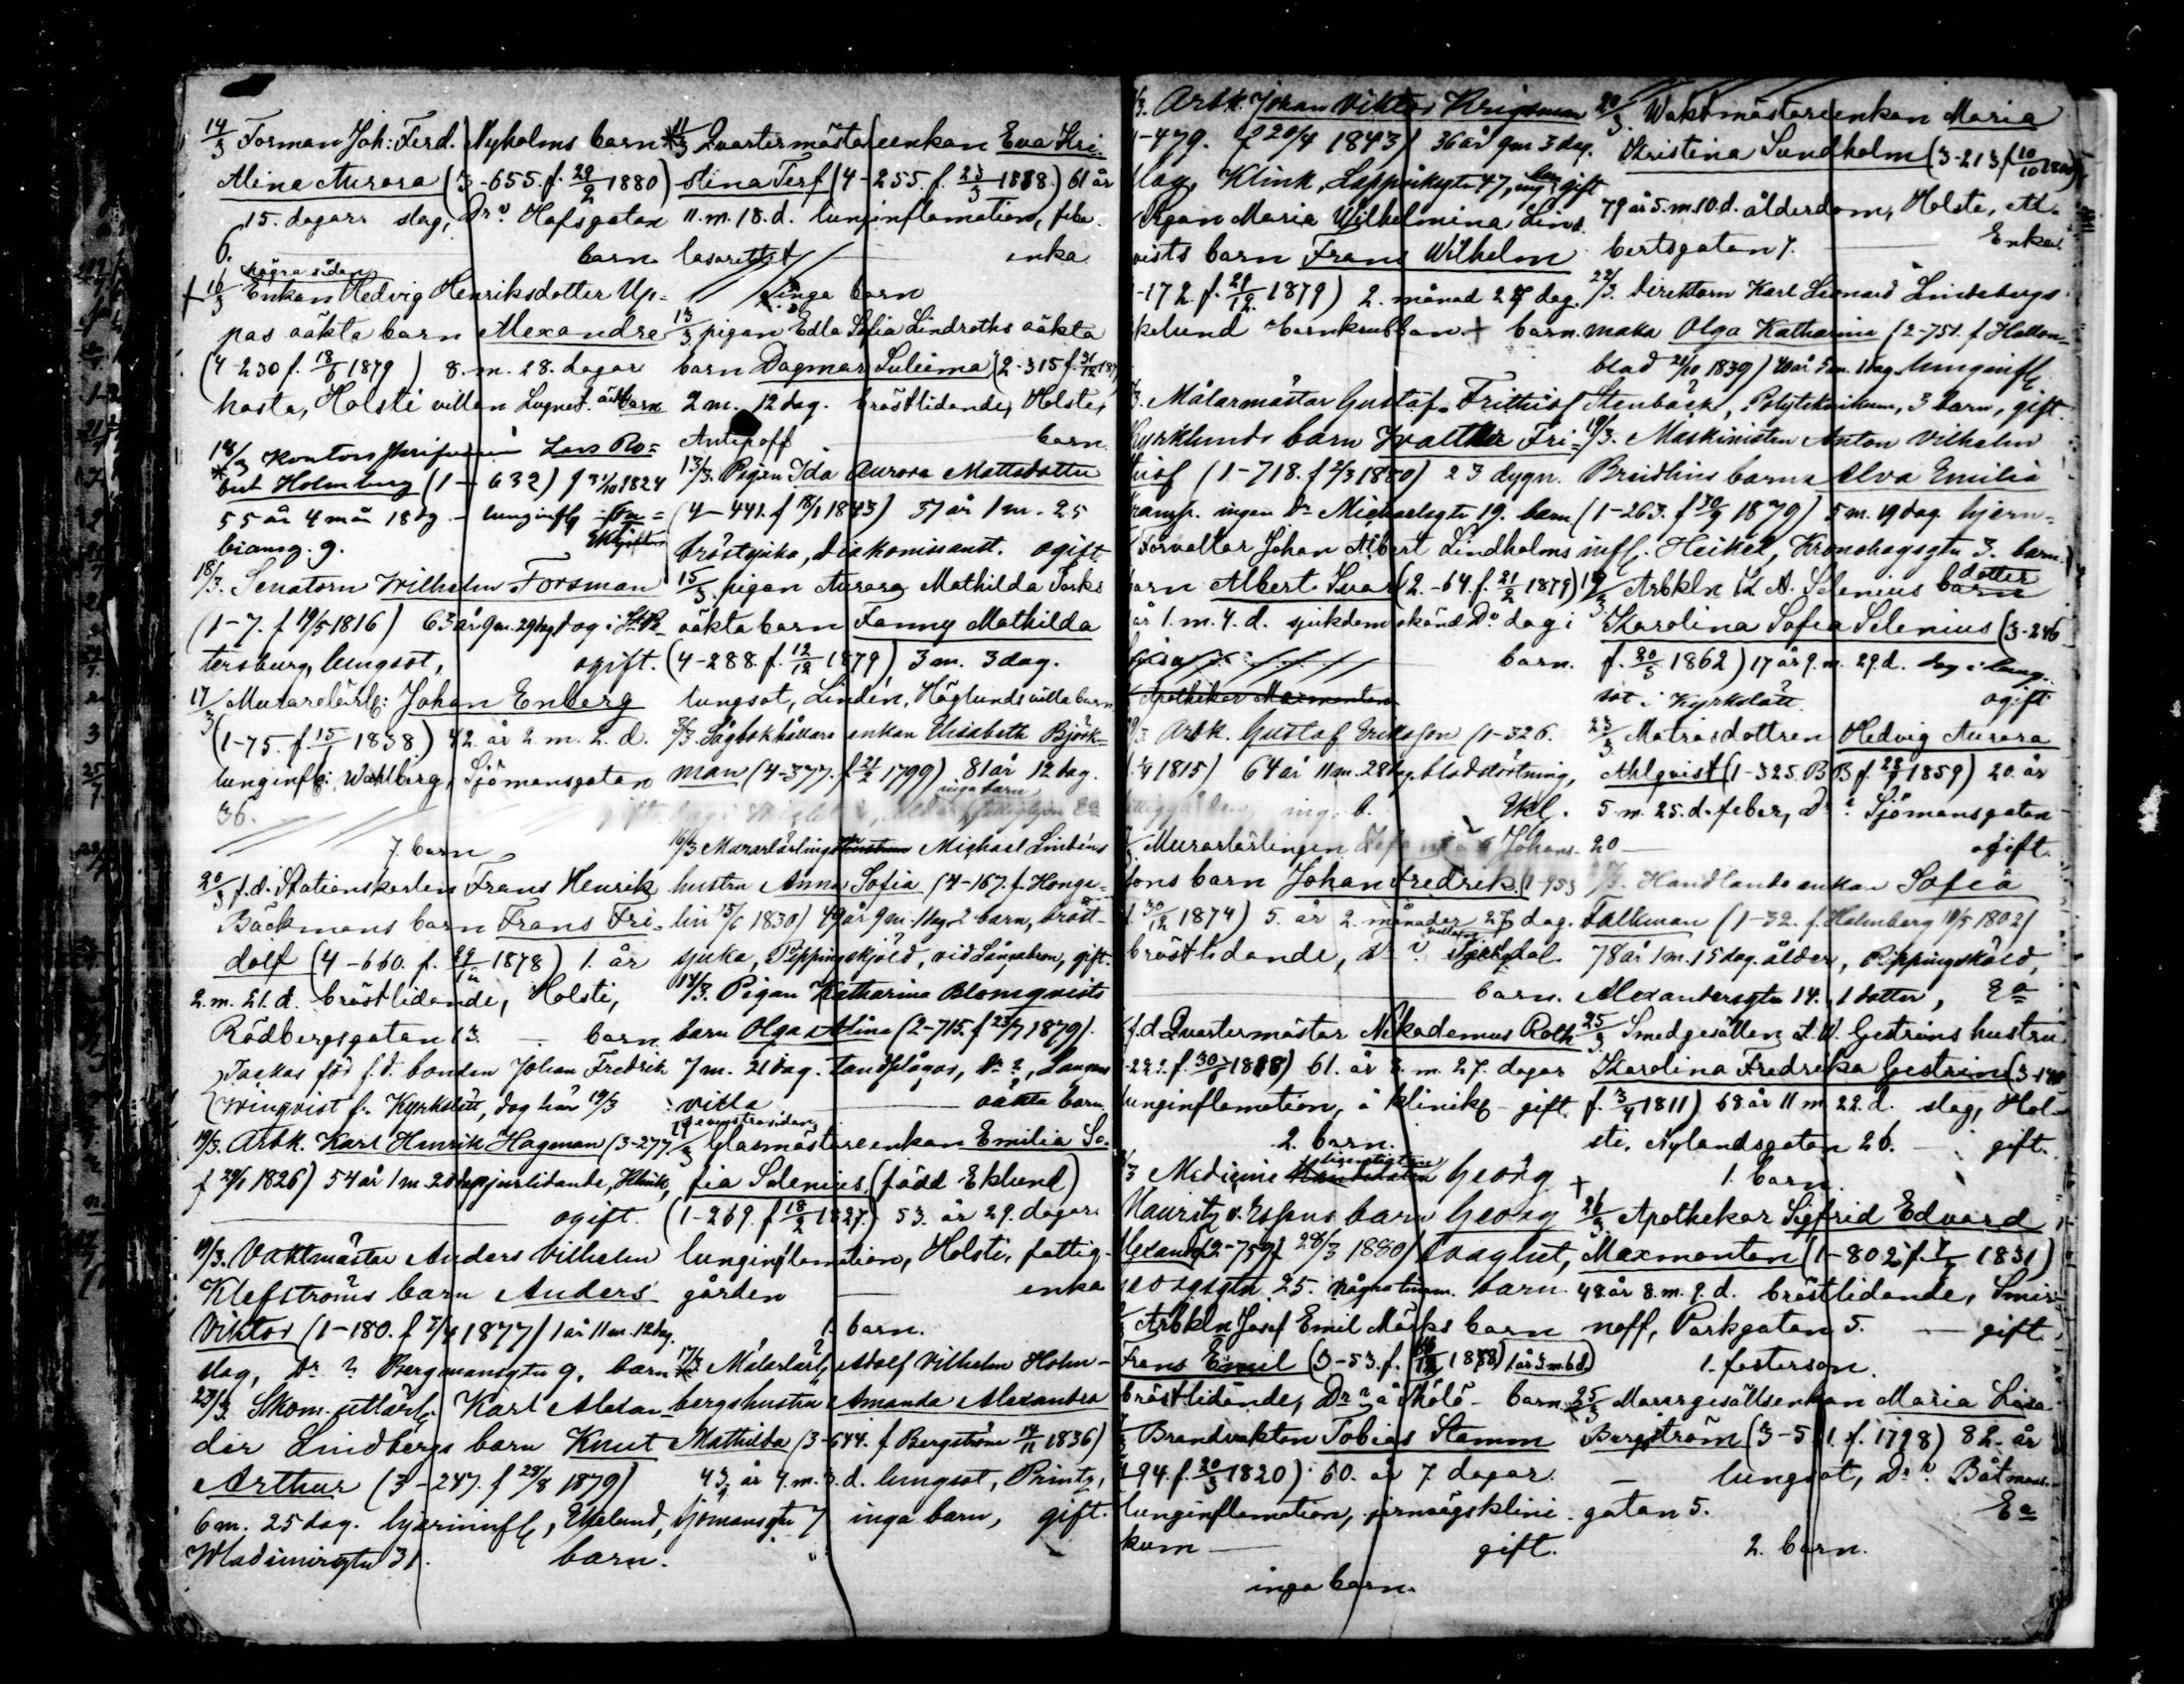 14/3 Forman Joh: Ferd. Nyholms barn
Alina Aurora (3-655. f. 29/2 1880)
15. dagar. slag, Dr ? Hafsgatan
6. barn
några sidan
+ 16/3 Enkan Hedvig Henriksdotter Up-
pas oäkta barn Alexandra
(4-230 f. 18/6 1879) 8. m. 28. dagar
hosta, Holsti villan Lugnet. barn
18/3 Lars Ro-
bert Holmberg (1-632) f 31/10 1824
55 år 4 mån 18 dg - lunginfl
biansg. 9.
18/3. Senatorn Wilhelm Forsman
(1-7. f 19/5 1816) 63 år 9 m. 29 dag dog i St. Pe-
tersburg, lungsot, ogift.
17/3 Murarelärl: Johan Enberg
(1-75. f 15/1 1838) 42. år 2 m. 2. d.
lunginfl: Wahlberg, Sjömansgatan
36.
7. barn
20/3 f.d. Stationskarlen Frans Henrik
Bäckmans barn Frans Fri-
dolf (4-660. f. 1878) 1. år
2. m. 21. d. bröstlidande, Holsti,
Rödbergsgatan 13. - barn
Backas föd f.d. bonden Johan Fredrik
Winqvist fr. Kyrkslätt, dog här 19/3
19/3. Arbk. Karl Henrik Hagman (3-277
f 29/1 1826) 54 år 1 m. 20 dag njurlidande, Klink,
ogift.
19/3. Vaktmästar Anders Vilhelm
Klefströms barn Anders
Viktor (1-180. f 7/4 1877) 1 år 11 m. 12 dag.
slag, Dr ? Bergmansgtn 9, barn
23/3. Skom. utlärl. Karl Alexan-
der Lindbergs barn Knut
Arthur (3-247. f 29/8 1879)
6 m. 25 dag. hjerninfl, Ekelund,
Wladimirsgtn 31. barn.
* 11/3 Qvartermästareenkan Eva Kri-
stina Terf (4-255. f. 23/3 1818.) 61 år
11. m. 18. d. lunginflamation,
lasarettet enka
inga barn
13/3 pigan Edla Sofia Lindroths oäkta
barn Dagmar Suliema (2-315 f. 31/12 187
2 m. 12 dag. bröstlidande, Holsti,
Antipoff barn
13/3. Pigan Ida Aurora Mattsdotter
(4-441. f 18/1 1843) 37 år 1 m. 25
bröstsjuka, diakonissanst. ogift
15/3 pigan Aurora Mathilda Forks
oäkta barn Fanny Mathilda
(4-288 f. 12/12 1879) 3 m. 3 dag.
lungsot, Lindén, Höglunds villa barn
3/3. Sågbokhållare enkan Elisabeth Björk-
man (4-377. f 21/2 1799) 81 år 12 dag.
inga barn
16/3 Murarlärling Michael Lindéns
hustru Anna Sofia (4-167. f. Honge-
lin 15/6 1830) 49 år 9 m. 1 dag 2 barn, bröst-
sjuka, Pippingskjöld, vid Långabron, gift.
14/3. Pigan Katharina Blomqvists
barn Olga Alina (2-715. f 23/7 1879).
7 m. 21 dag. tandplågor, Dr ?, Langens
villa oäkta barn
Glasmästareenkan Emilia So-
fia Selenius (född Eklund)
(1-269. f 18/2 1827.) 53. år 29. dagar
lunginflamation, Holsti, fattig-
gården enka
1. barn.
17/3 Målarlärl Adolf Vilhelm Holm-
bergs hustru Amanda Alexandra
Mathilda (3-644. f Bergström 14/11 1836)
43 år 4. m. 3. d. lungsot, Printz,
Sjömansgtn 7 inga barn, gift.
/3. Arbk. Johan Viktor Krigsman
1-479. f 20/4 1843) 36 år 9 m 3 dag.
slag, Klink, Lappviksgtn 47, gift
Pigan Maria Wilhelmina Lind
vists barn Frans Wilhelm
-172. f. 29/12 1879) 2. månad 27 dag.
kelund barnkrubban + barn.
/3. Målarmästar Gustaf Frithiof
Kyrklunds barn Walther Fri-
thiof (1-718. f 2/3 1880) 23 dygn.
kramp. ingen Dr Michaelsgtn 19. barn
Förvaltar Johan Albert Lindholms
barn Albert Ivar (2-64. f. 21/2 1879)
år 1. m. 4. d. sjukdom okänd Dr. dog i
barn.
Apothekar Maxmontan
/3 Arbk. Gustaf Eriksson (1-326.
/4 1815) 64 år 11 m. 28 dag. blodstörtning,
ing. b. Ekl.
/3 Murarlärlingen Johans-
sons barn Johan Fredrik (1-953
f. 30/12 1874) 5. år 2. månader 27 dag.
bröstlidande, Dr ?
barn.
f.d. Qvartermästar Nikodemus Roth
-29?. f. 30/ 1818) 61. år 8. m. 27. dagar
lunginflamation, å klinike - gift.
2. barn.
/3 Medicine licentiaten Georg
Mauritz v. Essens barn Georg
Alexander (2-759 f 28/3 1880) svaghet,
Georgsgtn 25. några timm. barn.
Arbkln Josef Emil Märks barn
Frans Emil (3-53. f. /12 1878) 1 år 3 m 6 d.
bröstlidande, Dr ? å Thölö - barn
Brandvakten Tobias Stamm
194. f. 20/3 1820) 60. år 7 dagar.
lunginflamation, jernvägsklini
kum gift.
inga barn.
20/3. Waktmästareenkan Maria
Kristina Sundholm (3-213 f 10/10 1800)
79 år 5. m. 10. d. ålderdom, Holsti, Al-
bertsgatan 7. Enka.
22/3. Direktorn Karl Leonard Lindebergs
maka Olga Katharina (2-751. f Hallon-
blad 21/10 1839) 40 år 5 m. 1 dag lunginfl
Stenbäck, Polyteknikum, 3 barn, gift
19/3. Maskinisten Anton Vilhelm
Breidlins barn Alva Emilia
(1-263. f 30/9 1879) 5 m. 19 dag hjern-
infl. Heikel, Kronohagsgtn 3. barn.
19/3 Arbkln A. Selenius dotter barn
Karolina Sofia Selenius (3-246
f. 20/5 1862) 17 år 9. m. 29. d. dog i lung-
sot i Kyrkslätt ogift
23/3 Matrosdottren Hedvig Aurora
Ahlqvist (1-325. BB f. 28/9 1859) 20. år
5 m. 25. d. feber, Dr ? Sjömansgatan
20 ogift
Handlande enkan Sofia
Falkman (1-32. f. Holmberg 10/5 1802)
78 år 1 m. 15 dag. ålder, Pippingsköld,
Alexandersgtn 14. 1 dotter, Ea
25/3 Smedgesällen A. W. Gestrins hustru
Karolina Fredrika Gestrin (3-140
f. 3/4 1811) 68 år 11 m. 22. d. slag, Hol-
sti, Nylandsgatan 26. - gift.
+ 1. barn.
26/3 Apothekar Sigfrid Edvard
Maxmontan (1-802 f. 1831)
48 år 8. m. 9. d. bröstlidande, Smir-
noff, Parkgatan 5. - gift
1. fosterson.
25/3 Murargesällsenkan Maria Lisa
Bergström (3-5 1. f. 1798) 82. år
- lungsot, Dr ? Båtmans-
gatan 5. Ea
2. barn.